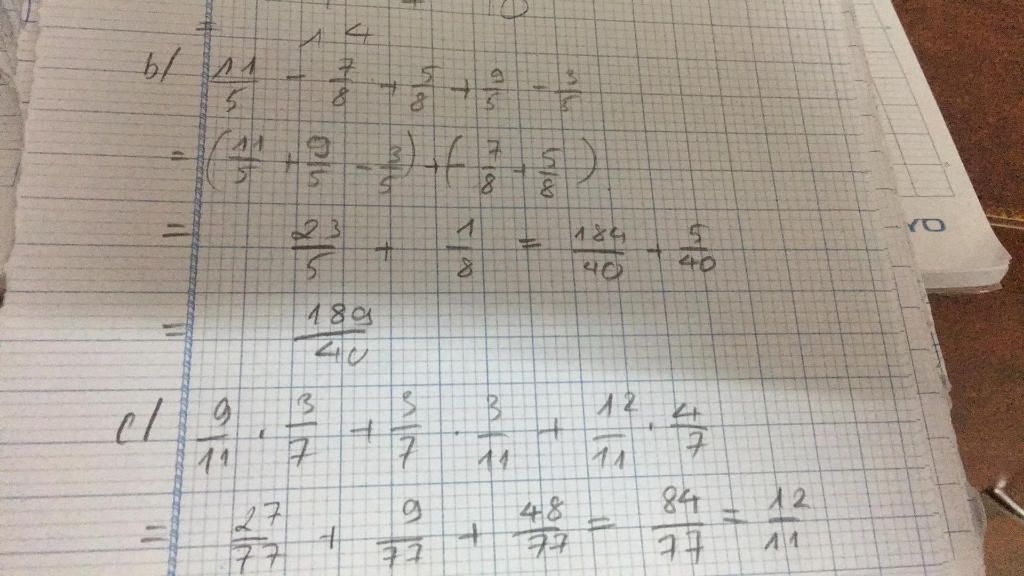 =
1 4
b/ 11/5 - 7/8 + 5/8 + 9/5 - 3/5
= (11/5 + 9/5 - 3/5) + (- 7/8 + 5/8)
= 23/5 + 1/8 = 184/40 + 5/40
= 189/40
c/ 9/11 . 3/7 + 3/7 . 3/11 + 12/11 . 4/7
= 27/77 + 9/77 + 48/77 = 84/77 = 12/11
YO